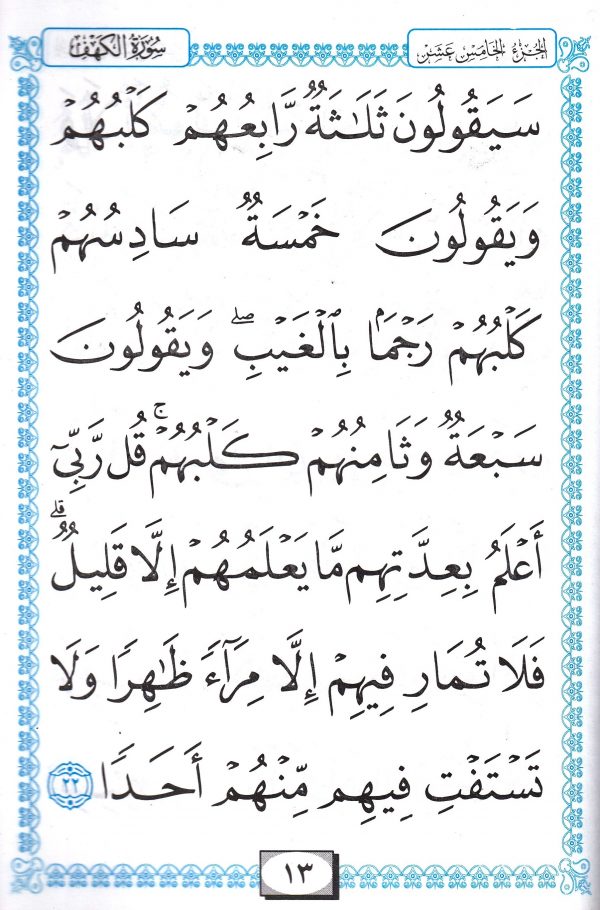 الجزء الخامس عشر
سورة الكهف
سَيَقُولُونَ ثَلَٰثَةٌ رَّابِعُهُمْ كَلْبُهُمْ
وَيَقُولُونَ خَمْسَةٌ سَادِسُهُمْ
كَلْبُهُمْ رَجْمًۢا بِٱلْغَيْبِ ۖ وَيَقُولُونَ
سَبْعَةٌ وَثَامِنُهُمْ كَلْبُهُمْ ۚ قُل رَّبِّىٓ
أَعْلَمُ بِعِدَّتِهِم مَّا يَعْلَمُهُمْ إِلَّا قَلِيلٌ ۗ
فَلَا تُمَارِ فِيهِمْ إِلَّا مِرَآءً ظَٰهِرًا وَلَا
تَسْتَفْتِ فِيهِم مِّنْهُمْ أَحَدًا ٢٢
١٣